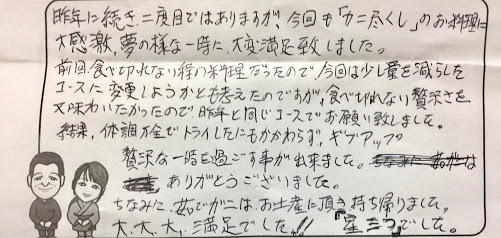 昨年に続き、二度目ではありますが、今回も「カニ尽くし」のお料理に
大感激、夢の様な一時に、大変満足致しました。
前回、食べ切れない程の料理だったので、今回は少し量を減らした
コースに変更しようかとも考えたのですが、食べ切れない贅沢さを
又味わいたかったので、昨年と同じコースでお願い致しました。
結果、体調万全でトライしたにもかかわらず、ギブアップ
贅沢な一時を過ごす事が出来ました。
ありがとうございました。
ちなみに、茹でガニは、お土産に頂き持ち帰りました。
大、大、大、満足でした!! 『星三つ』でした。